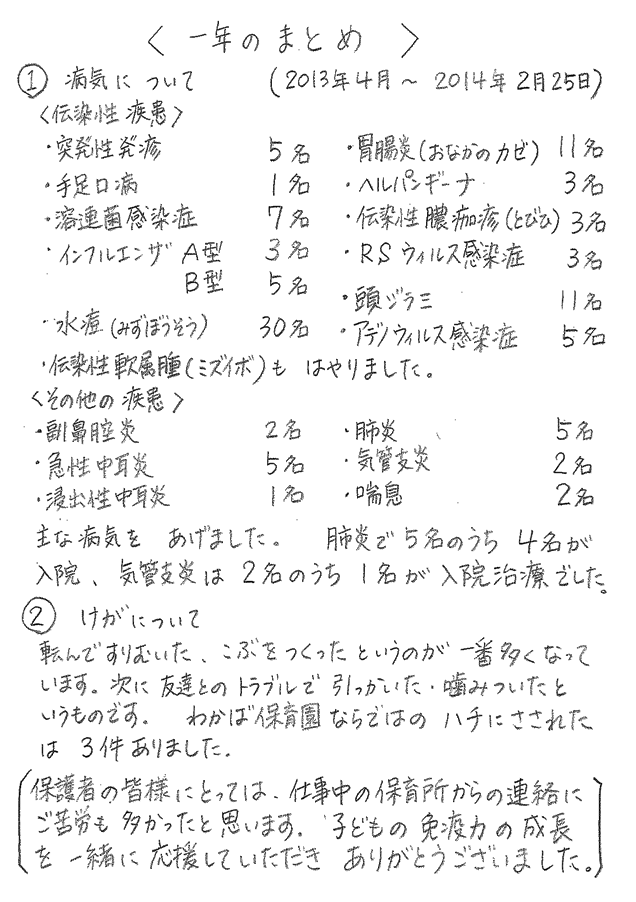 〈 一年のまとめ 〉
① 病気について (2013年4月 ～ 2014年2月25日)
〈伝染性疾患〉
・突発性発疹 5名 ・胃腸炎(おなかのカゼ) 11名
・手足口病 1名 ・ヘルパンギーナ 3名
・溶連菌感染症 7名 ・伝染性膿痂疹(とびひ) 3名
・インフルエンザ A型 3名 ・RSウィルス感染症 3名
B型 5名 ・頭ジラミ 11名
・水痘(みずぼうそう) 30名 ・アデノウィルス感染症 5名
・伝染性軟属腫(ミズイボ)も はやりました。
〈その他の疾患〉
・副鼻腔炎 2名 ・肺炎 5名
・急性中耳炎 5名 ・気管支炎 2名
・浸出性中耳炎 1名 ・喘息 2名
主な病気を あげました。 肺炎で5名のうち 4名が
入院、気管支炎は2名のうち 1名が入院治療でした。
② けがについて
転んですりむいた、こぶをつくったというのが一番多くなって
います。次に友達とのトラブルで引っかいた・噛みついたと
いうものです。 わかば保育園ならではの ハチにさされた
は 3件ありました。
(保護者の皆様にとっては、仕事中の保育所からの連絡に
ご苦労も多かったと思います。子どもの免疫力の成長
を一緒に応援していただき ありがとうございました。)